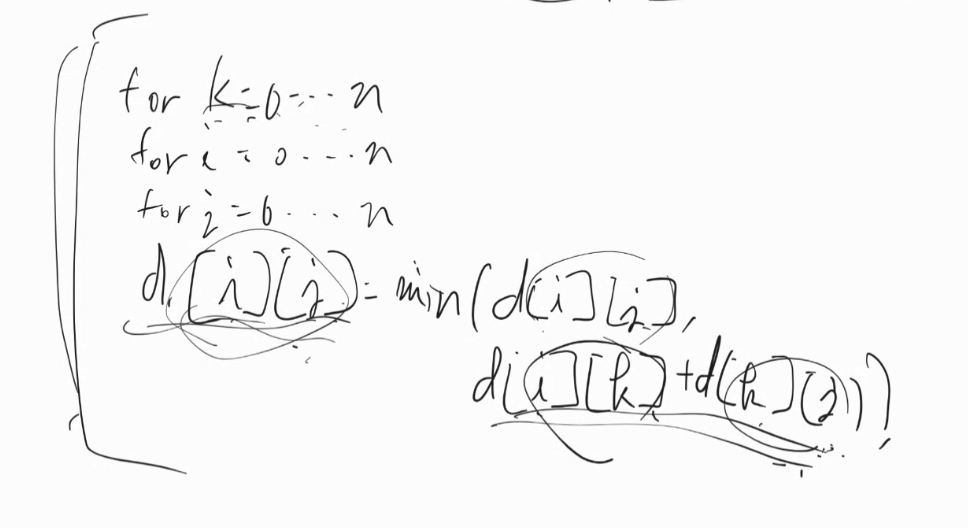 for k=0...n
for i=0...n
for j=0...n
d[i][j]=min(d[i][j],
d[i][k]+d[k][j]);